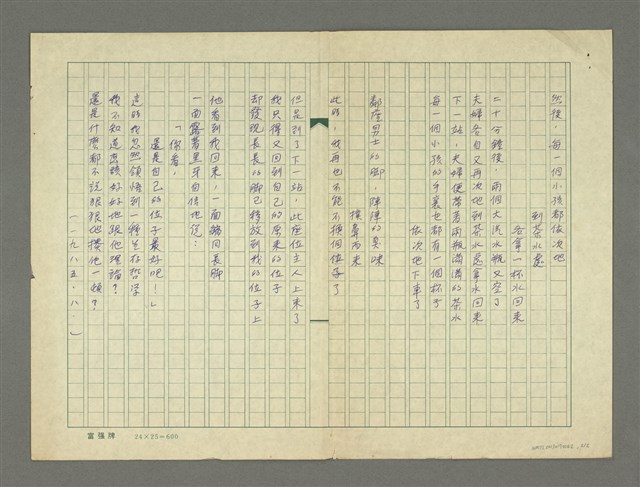 然後，每一個小孩都依次地
到茶水處
各拿一杯水回來
二十分鐘後，兩個大汽水瓶又空了
夫婦各自又再次地到茶水處拿水回來
下一站，夫婦便帶著兩瓶滿滿的茶水
每一個小孩的手裏也都有一個杯子
依次地下車了
鄰座男士的腳，陣陣的臭味
撲鼻而來
此時，我再也不能不換個位子了
但是到了下一站，此座位主人上來了
我只得又回到自己的原來的位子
却發現長長的腳已移放到我的位子上
他看到我回來，一面縮回長脚
一面露著黑牙自信地說：
「你看，
還是自己的位子最好吧！」
這時我忽然領悟到一種生存哲學
我不知道應該好好地跟他理論？
還是什麼都不說狠狠他揍他一頓？
（一九八五・八）
富強牌 24×25=600